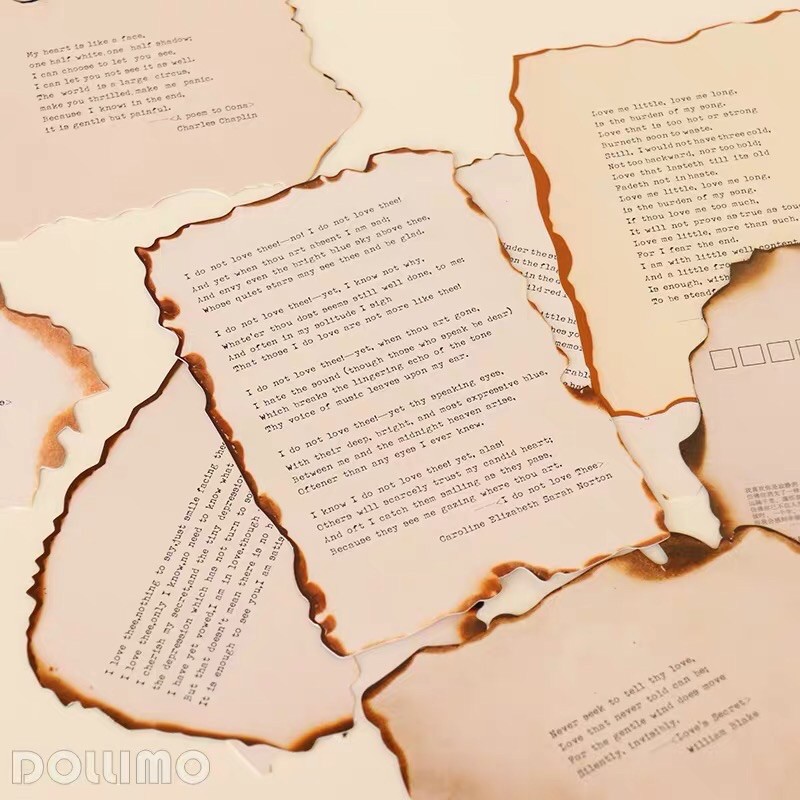 My heart is like a face,
one half white,one half shadow;
I can choose to let you see,
I can let you not see it as well.
The world is a large circus,
make you thrilled,make me panic.
Because I know: in the end,
it is gentle but painful.
——<A poem to Oona>
Charles Chaplin
Love me little, love me long,
is the burden of my song.
Love that is too hot or strong
Burneth soon to waste.
Still, I would not have three cold,
Not too backward, nor too bold;
Love that lasteth till its old
Fadeth not in haste.
Love me little, love me long,
is the burden of my song.
If thou love me too much,
It will not prove as true as touc
Love me little, more than such,
For I fear the end.
I am with little well content
And a little fro
Is enough, with
To be stead
I do not love thee!—no! I do not love thee!
And yet when thou art absent I am sad;
And envy even the bright blue sky above thee,
Whose quiet stars may see thee and be glad.
I do not love thee!—yet, I know not why,
Whate'er thou dost seems still well done, to me:
And often in my solitude I sigh
That those I do love are not more like thee!
I do not love thee!—yet, when thou art gone,
I hate the sound (though those who speak be dear)
Which breaks the lingering echo of the tone
Thy voice of music leaves upon my ear.
I do not love thee!—yet thy speaking eyes,
With their deep, bright, and most expressive blue.
Between me and the midnight heaven arise,
Oftener than any eyes I ever knew.
I know I do not love thee! yet, alas!
Others will scarcely trust my candid heart;
And oft I catch them smiling as they pass,
Because they see me gazing where thou art.
——<I do not love Thee>
Caroline Elizabeth Sarah Norton
I love thee,nothing to say,just smile facing thee
I love thee,only I know,no need to know what
I cherish my secret,and the tiny depression
the depression which has not turn to so
I have yet vowed,I am in love,though
But that doesn't mean there is no h
It is enough to see you,I am satis
Never seek to tell thy love,
Love that never told can be;
For the gentle wind does move
Silently, invisibly.
——<Love's Secret>
William Blake
DOLLIMO